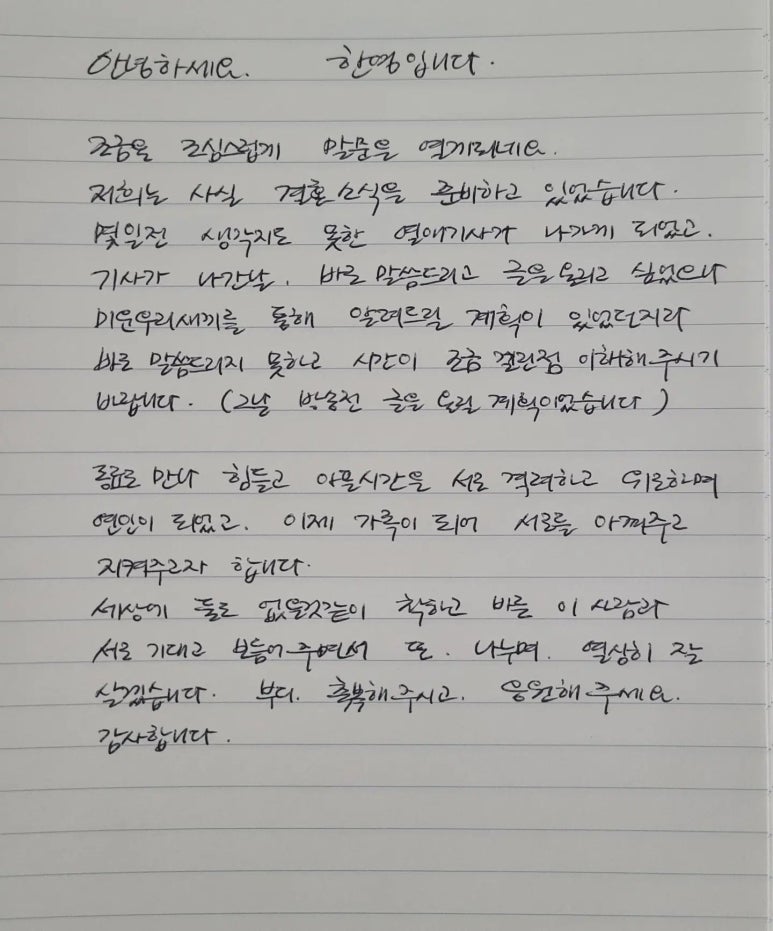 안녕하세요. 한영입니다.
조금은 조심스럽게 말문을 열게되네요.
저희는 사실 결혼소식을 준비하고 있었습니다.
몇일전 생각지도 못한 열애기사가 나가게 되었고,
기사가 나간날, 바로 말씀드리고 글을 올리고 싶었으나
미운우리새끼를 통해 알려드릴 계획이 있었던지라
바로 말씀드리지 못하고 시간이 조금 걸린점 이해해주시기
바랍니다. (그날 방송전 글을 올릴 계획이었습니다)
동료로 만나 힘들고 아플시간을 서로 격려하고 위로하며
연인이 되었고, 이제 가족이 되어 서로를 아껴주고
지켜주고자 합니다.
세상에 둘도 없을것같이 착하고 바른 이 사람과
서로 기대고 보듬어주면서 또, 나누며, 열심히 잘
살겠습니다. 부디, 축복해주시고, 응원해주세요.
감사합니다.